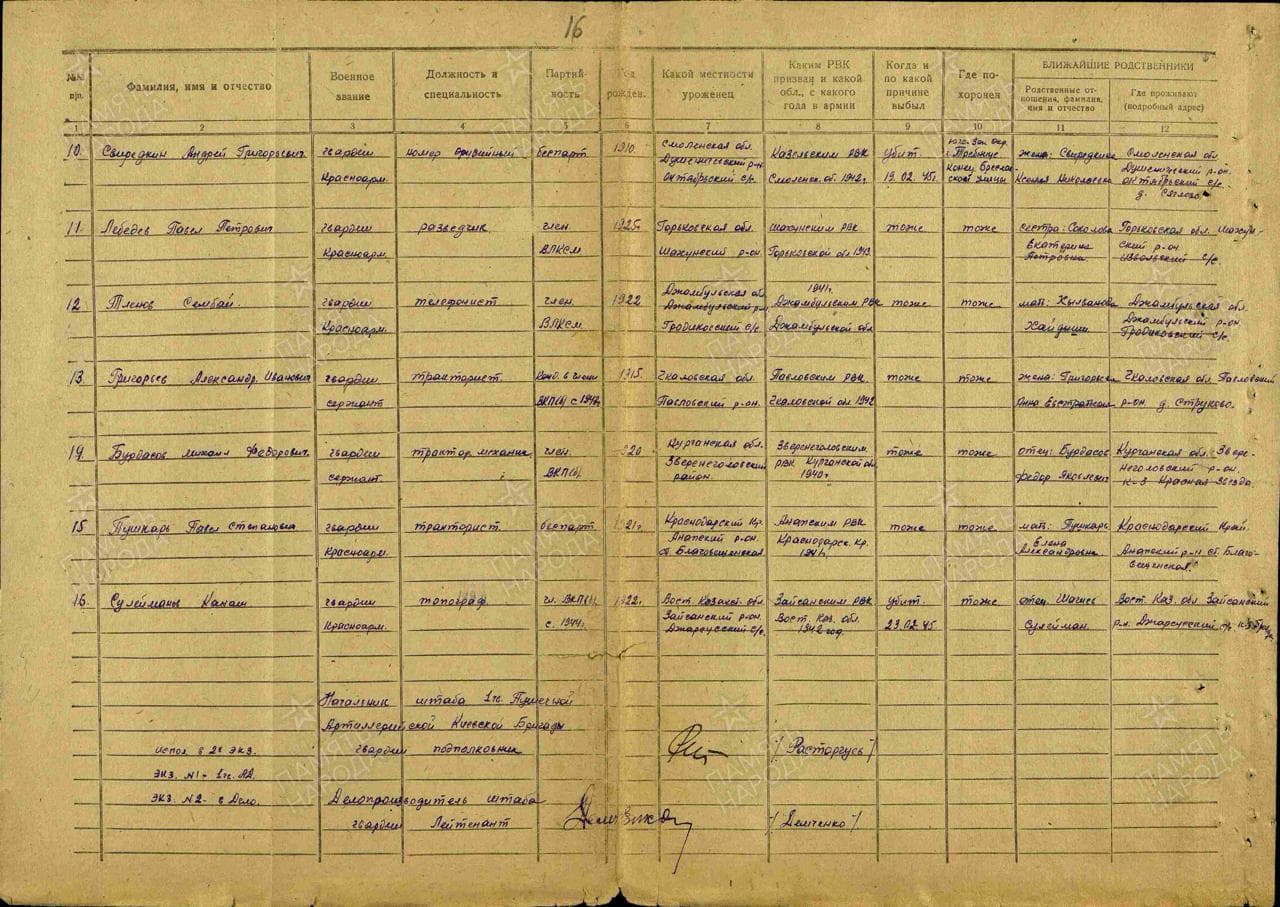 16
№№ п/п.
Фамилия, имя и отчество
Военное звание
Должность и специальность
Партийность
Год рожден.
Какой местности уроженец
Каким РВК призван и какой обл., с какого года в армии
Когда и по какой причине выбыл
Где похоронен
БЛИЖАЙШИЕ РОДСТВЕННИКИ
Родственные отношения, фамилия, имя и отчество
Где проживают (подробный адрес)
1 2 3 4 5 6 7 8 9 10 11 12
10. Свиредкин Андрей Григорьевич гвардии номер орудийный беспарт. 1910 Смоленская обл. Козельским РВК убит жена: Свиредкина Смоленская обл.
Красноарм. Октябрьский с/с. Смоленск. об. 1942г 19.02.45г. Ксения Николаевна Октябрьский с/с.
11. Лебедев Павел Петрович гвардии разведчик член 1925г. Горьковская обл. Шахунским РВК тоже тоже сестра: Соколова Горьковская обл. Шахун-
Красноарм. ВЛКСМ Шахунский р-он. Горьковской обл 1943 Екатерина Петровна ский р-он
12 Сембай. гвардии телефонист член. 1922 Джамбульская обл. Джамбульский р-н 1941г. Джамбульским РВК тоже тоже мать: Джамбульская обл.
Красноарм. ВЛКСМ Гродиковский с/с. Джамбульской обл. Джамбульский р-он Гродиковский с/с.
13. Григорьев Александр Иванович гвардии тракторист. Канд. в члены 1915. Чкаловская обл. Павловским РВК. тоже тоже жена: Григорьева Чкаловская обл. Павловский
сержант ВКП(б) с Павловский р-он. Чкаловской обл 1942 Анна р-он. д. Струково.
14. Бурбасов Михаил Федорович гвардии трактор. механик член. 1920 Курганская обл. Звериноголовским тоже тоже отец: Бурбасов Курганская обл. Звери-
сержант. ВКП(б). район. РВК Курганской обл 1940г. Федор Яковлевич ноголовский р-он. к-з Красная Звезда
15 Пушкарь Павел Степанович гвардии тракторист. беспарт. 1921г. Краснодарский Кр. Анапским РВК тоже тоже мать: Пушкарь Краснодарский Край.
Красноарм. Анапский р-он. ст. Благовещенская. Краснодарск. Кр. 1941г. Елена Александровна Анапский р-н ст. Благовещенская.
16. Канаш гвардии топограф. чл. ВКП(б) 1922г. Вост. Казахст. обл. Зайсанским РВК убит. тоже. отец Вост. Каз. обл Зайсанский
Красноарм. с. 1944г. Зайсанский р-он. Вост. Каз. обл. 1942 год. 23.02.45 Сулейман.
Начальник штаба 1гв. Пушечной
Артиллерийской Киевской Бригады
гвардии подполковник /Расторгуев/
Испол. в 2х экз.
экз. №1 - 1гв. АД.
экз. №2 - в Дело.
Делопроизводитель штаба
гвардии Лейтенант Демченко /Демченко/
ПАМЯТЬ НАРОДА